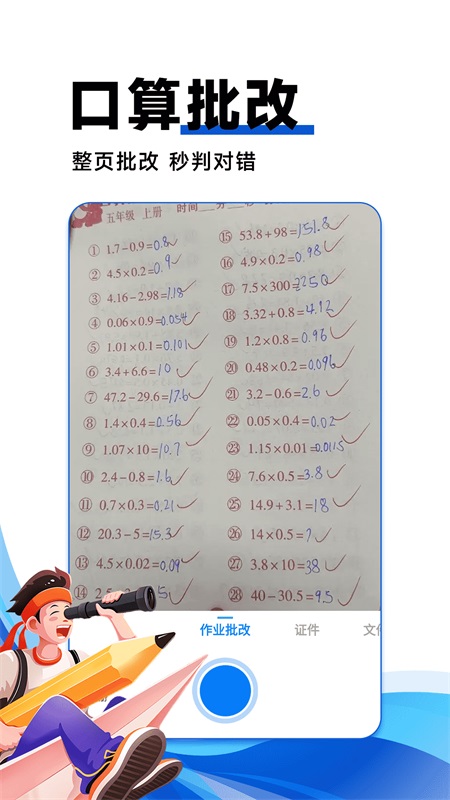 口算批改
整页批改 秒判对错
五年级 上册 时间__分__秒
① 1.7-0.9=0.8
② 4.5×0.2=0.9
③ 4.16-2.98=1.18
④ 0.06×0.9=0.054
⑤ 1.01×0.1=0.101
⑥ 3.4+6.6=10
⑦ 47.2-29.6=17.6
⑧ 1.4×0.4=0.56
⑨ 1.07×10=10.7
⑩ 2.4-0.8=1.6
⑪ 0.7×0.3=0.21
⑫ 20.3-5=15.3
⑬ 4.5×0.02=0.09
⑭
⑮ 53.8+98=151.8
⑯ 4.9×0.2=0.98
⑰ 7.5×300=2250
⑱ 3.32+0.8=4.12
⑲ 1.2×0.8=0.96
⑳ 0.48×0.2=0.096
㉑ 3.2-0.6=2.6
㉒ 0.05×0.4=0.02
㉓ 1.15×0.01=0.0115
㉔ 7.6×0.5=3.8
㉕ 14.9+3.1=18
㉖ 14×0.5=7
㉗ 3.8×10=38
㉘ 40-30.5=9.5
作业批改 证件